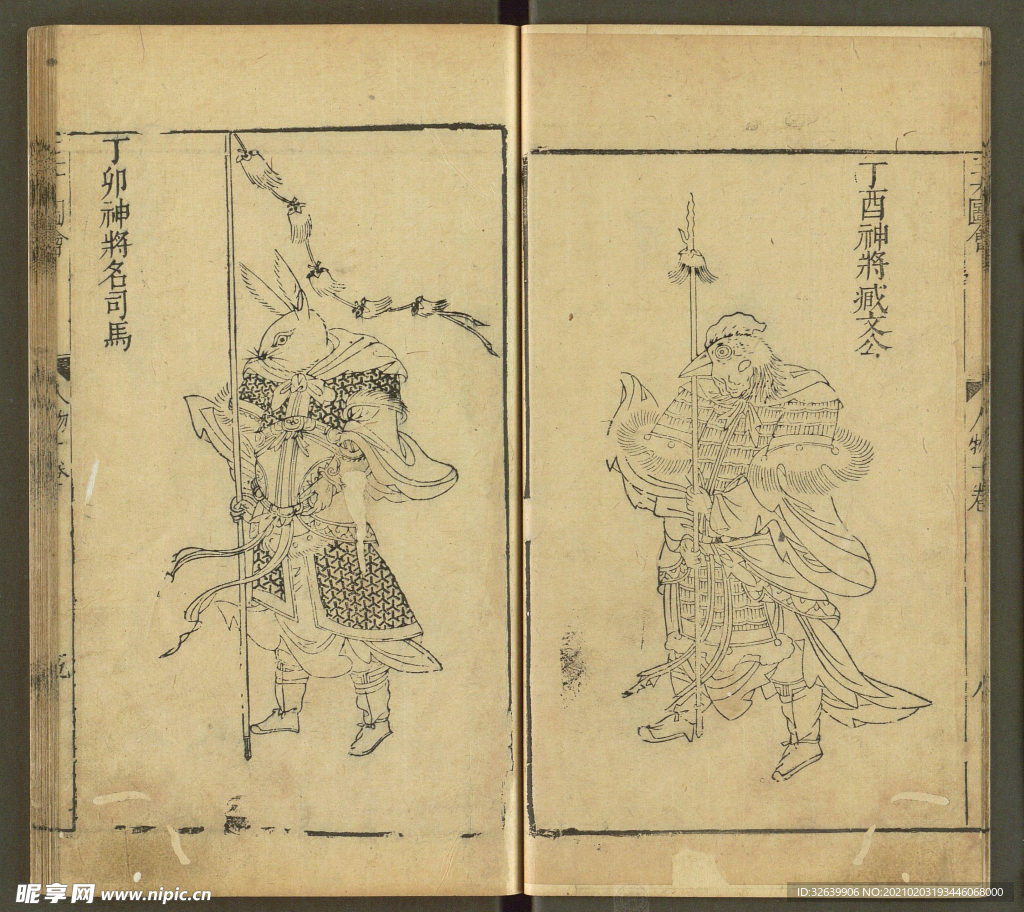 丁酉神將臧文公
丁卯神將名司馬
圖會
人物十卷
昵享网 www.nipic.cn
ID:32639906 NO:20210203193446068000